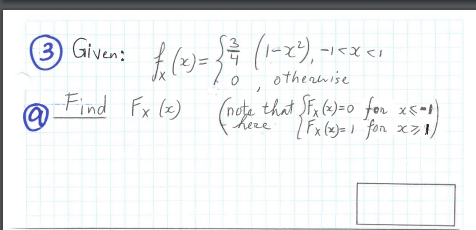 ③ Given: fₓ(x) = { 3/4 (1-x²), -1<x<1
0 , otherwise
ⓐ Find Fₓ(x) (note that { Fₓ(x)=0 for x≤-1
here { Fₓ(x)=1 for x≥1)